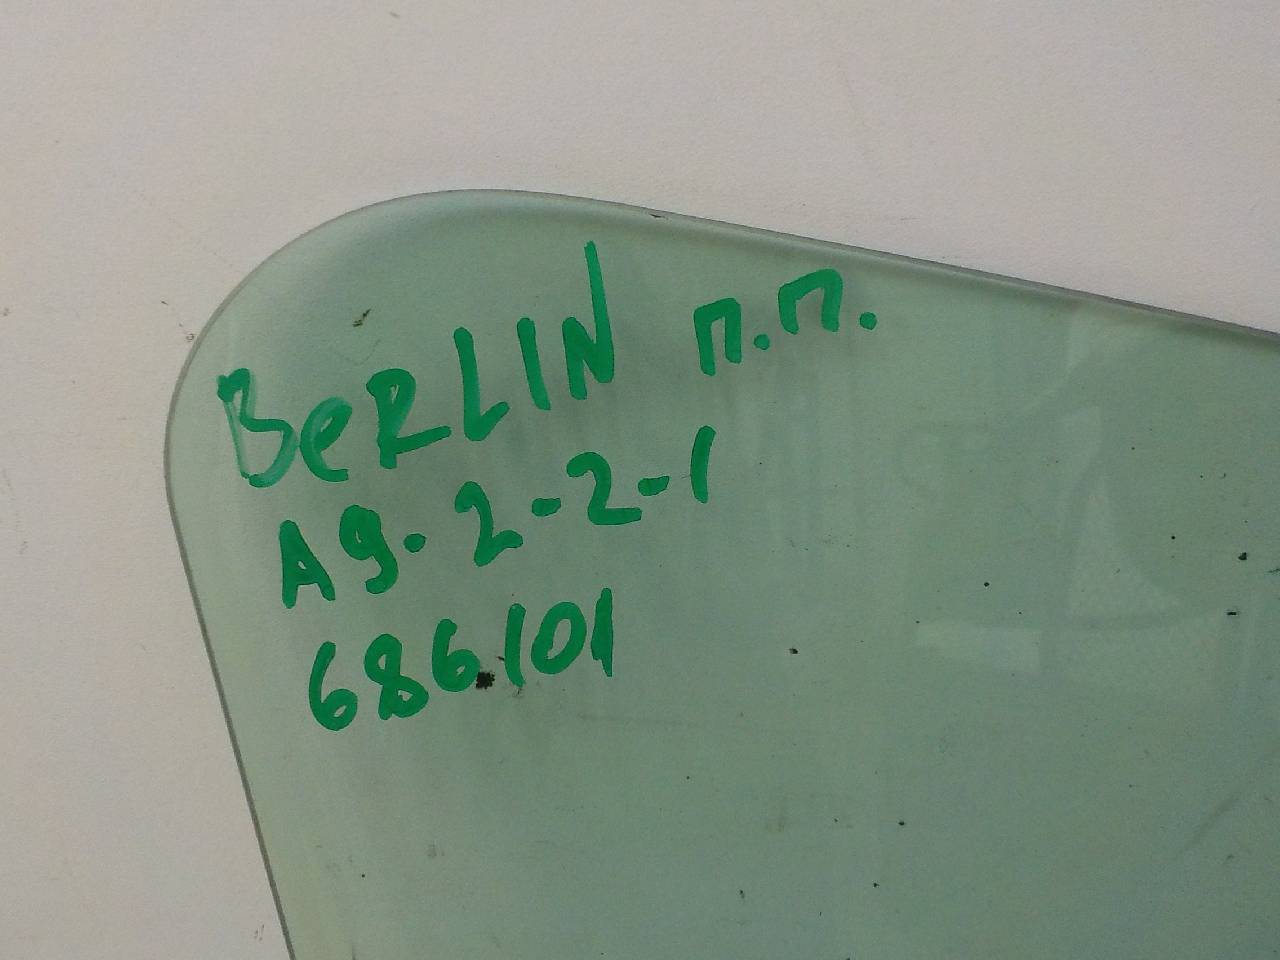 BeRLIN п.п.
A9.2-2-1
686101